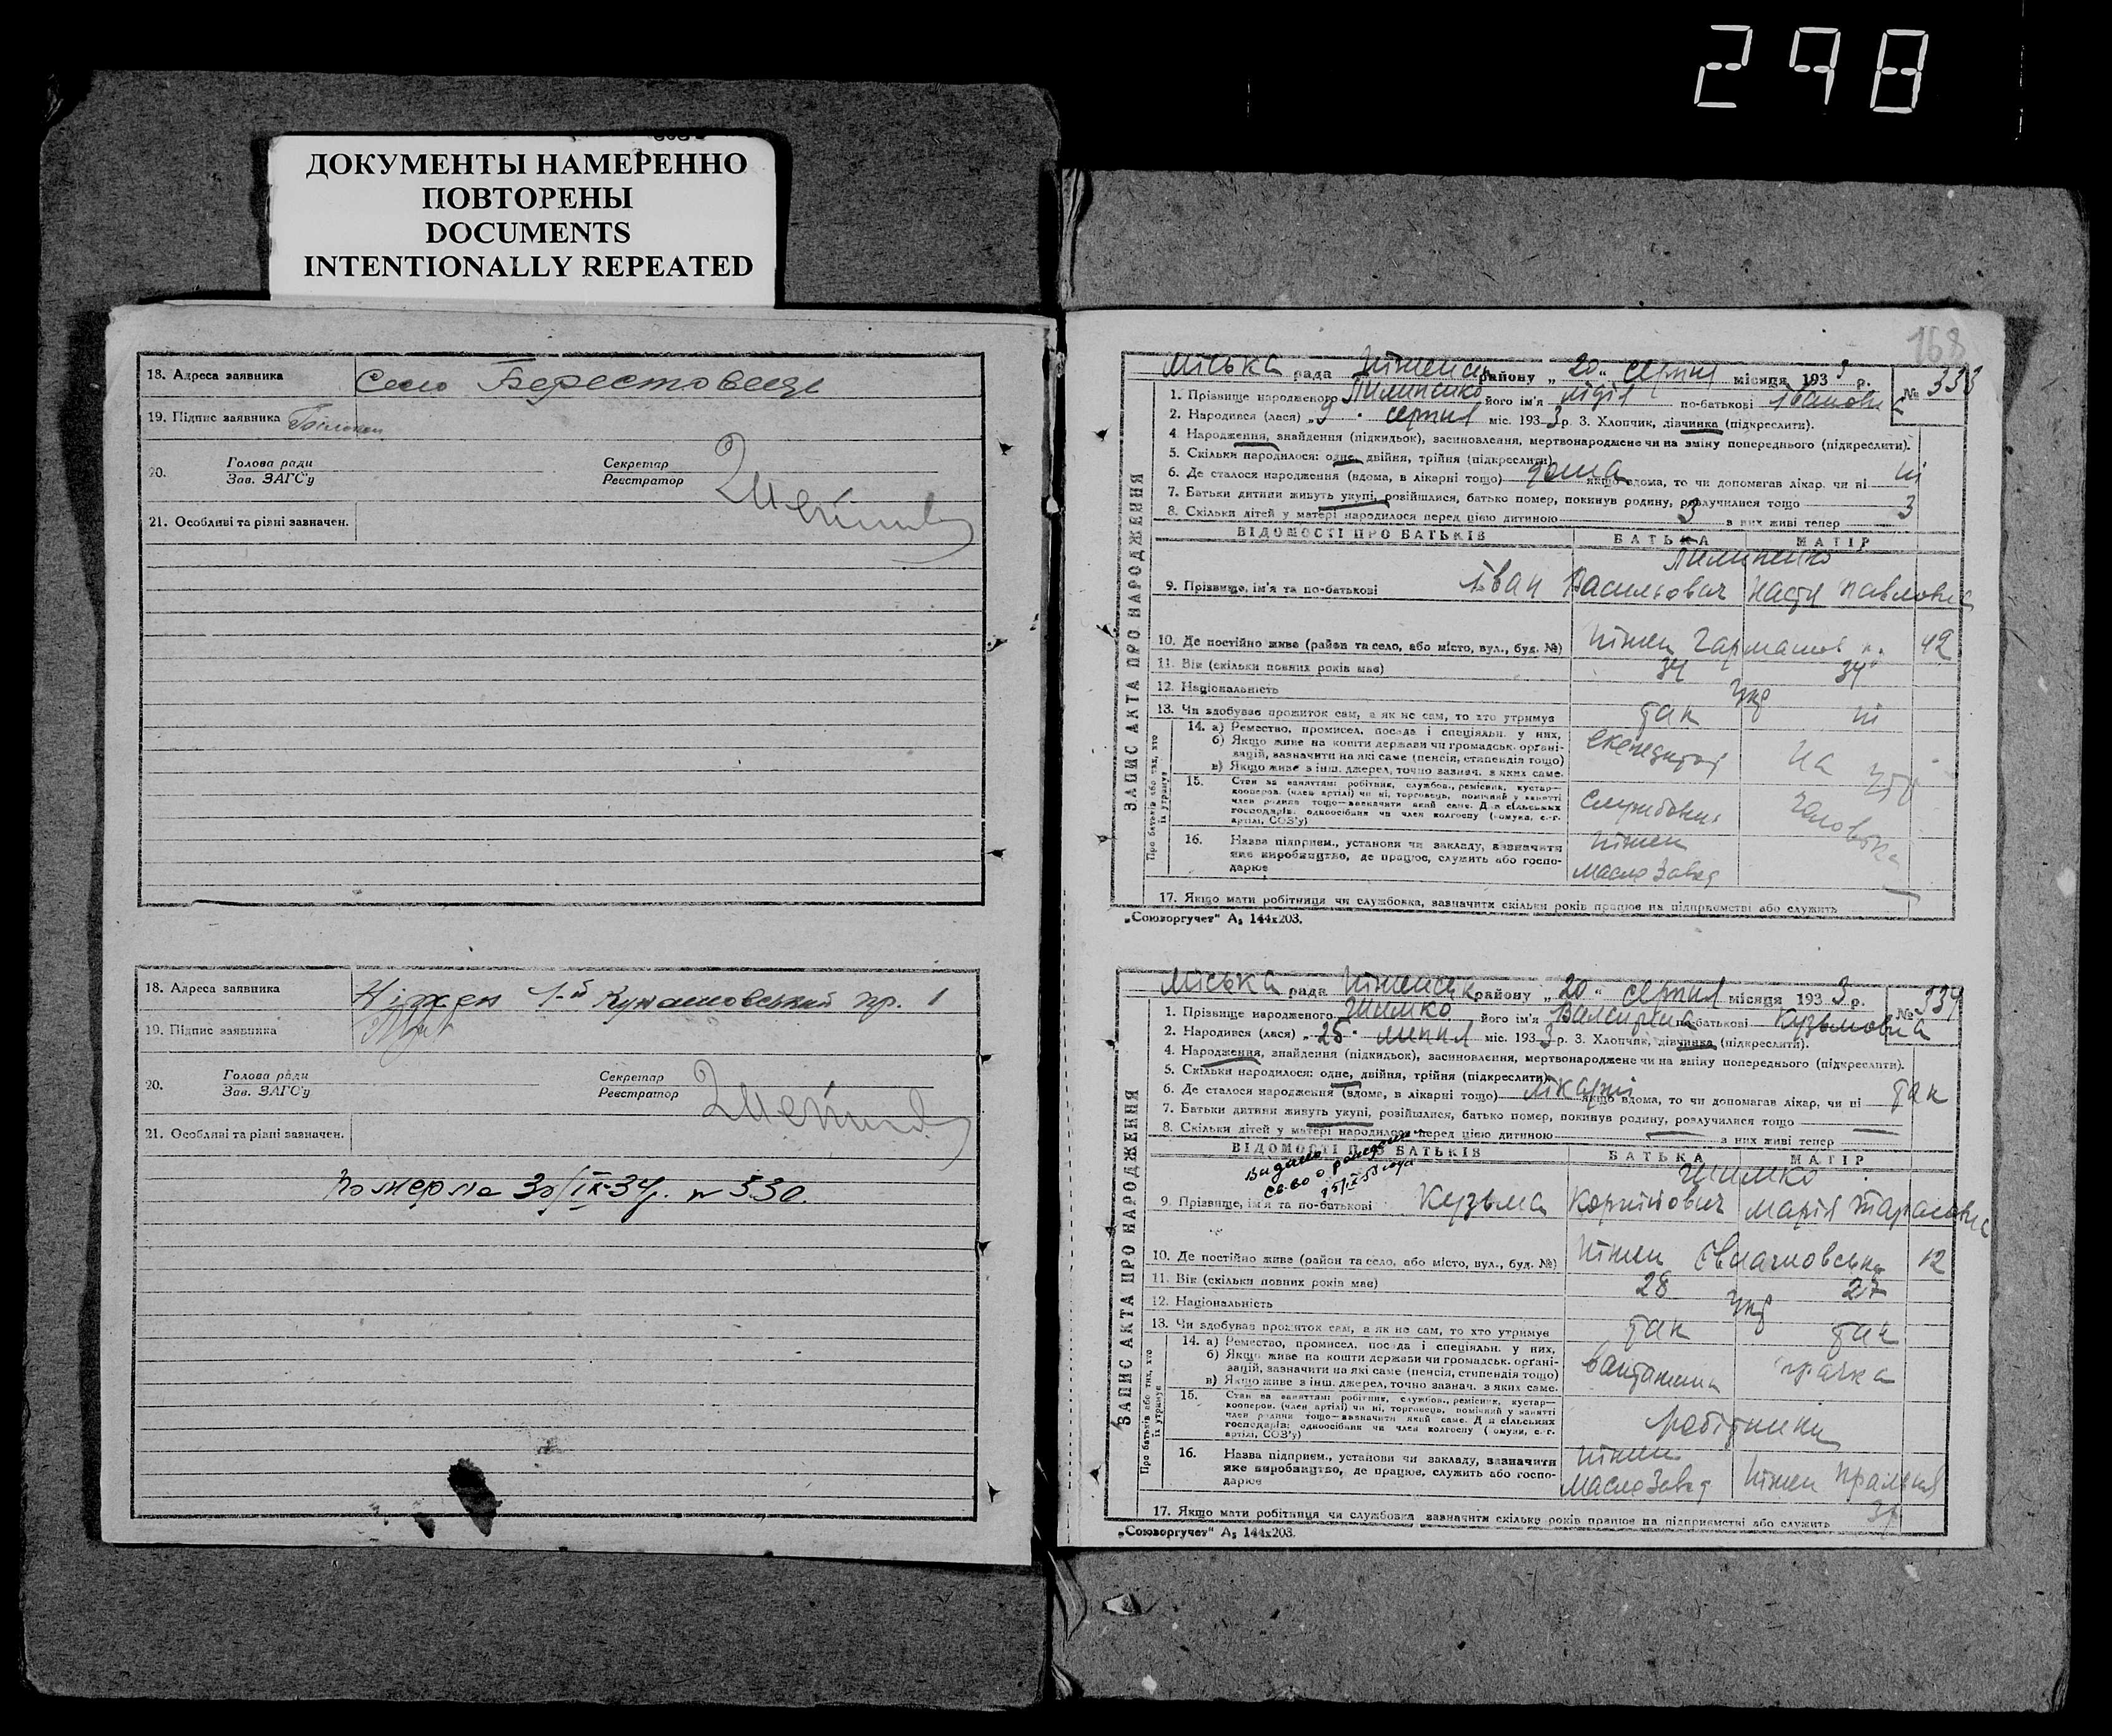 298
ДОКУМЕНТЫ НАМЕРЕННО
ПОВТОРЕНЫ
DOCUMENTS
INTENTIONALLY REPEATED
18. Адреса заявника Село Берестовець
19. Підпис заявника
20. Голова ради Секретар
Зав. ЗАГС'у Реєстратор
21. Особливі та різні зазначен.
18. Адреса заявника Ніжен 1-й Кунашовський пр. 1
19. Підпис заявника
20. Голова ради Секретар
Зав. ЗАГС'у Реєстратор
21. Особливі та різні зазначен.
померла 30/IX-34р. № 530
168
ЗАПИС АКТА ПРО НАРОДЖЕННЯ
Міська рада Ніженськ району „ 20 " серпня місяця 1933 р. № 333
1. Прізвище народженого Пилипенко його ім'я Лідія по-батькові Івановн
2. Народився (лася) „ 9 " серпня міс. 1933 р. 3. Хлопчик, дівчинка (підкреслити).
4. Народження, знайдення (підкидьок), засиновлення, мертвонароджене чи на зміну попереднього (підкреслити).
5. Скільки народилося: одне, двійня, трійня (підкреслити)
6. Де сталося народження (вдома, в лікарні тощо) дома якщо вдома, то чи допомагав лікар, чи ні ні
7. Батьки дитини живуть укупі, розійшлися, батько помер, покинув родину, розлучилися тощо
8. Скільки дітей у матері народилося перед цією дитиною 3 в них живі тепер 3
ВІДОМОСТІ ПРО БАТЬКІВ БАТЬКА МАТІР
Пилипенко
9. Прізвище, ім'я та по-батькові Іван Васильович Настя Павловна
10. Де постійно живе (район та село, або місто, вул., буд. №) Ніжен 42
11. Вік (скільки повних років має) 34 34
12. Національність Укр
13. Чи здобуває прожиток сам, а як не сам, то хто утримує так ні
Про батьків або тих, хто їх утримує
14. а) Ремество, промисел, посада і спеціяльн. у них,
б) Якщо живе на кошти держави чи громадськ. органі-
зацій, зазначити на які саме (пенсія, стипендія тощо)
в) Якщо живе з інш. джерел, точно зазнач. з яких саме.
експедитор на утр чоловіка
15. Стан за заняттям: робітник, службов., ремісник, кустар—
кооперов. (член артілі) чи ні, торговець, помічний у занятті
член родини тощо—зазначити який саме. Для сільських
господарів: одноосібник чи член колгоспу (комуни, с.-г.
артілі, СОЗ'у)
службовец
16. Назва підприєм., установи чи закладу, зазначити
яке виробництво, де працює, служить або госпо-
дарює
Ніжен
Масло Завод
17. Якщо мати робітниця чи службовка, зазначити скільки років працює на підприємстві або служить
„Союзоргучет" А₅ 144x203.
ЗАПИС АКТА ПРО НАРОДЖЕННЯ
Міська рада Ніженськ району „ 20 " серпня місяця 1933 р. № 334
1. Прізвище народженого Шимко його ім'я Валентина по-батькові Кузьмовна
2. Народився (лася) „ 25 " липня міс. 1933 р. 3. Хлопчик, дівчинка (підкреслити).
4. Народження, знайдення (підкидьок), засиновлення, мертвонароджене чи на зміну попереднього (підкреслити).
5. Скільки народилося: одне, двійня, трійня (підкреслити)
6. Де сталося народження (вдома, в лікарні тощо) лікарні якщо вдома, то чи допомагав лікар, чи ні так
7. Батьки дитини живуть укупі, розійшлися, батько помер, покинув родину, розлучилися тощо
8. Скільки дітей у матері народилося перед цією дитиною — в них живі тепер —
ВІДОМОСТІ ПРО БАТЬКІВ БАТЬКА МАТІР
Видано св-во о рождении
Шимко
9. Прізвище, ім'я та по-батькові Кузьма Корнійович Марія Тарасовна
10. Де постійно живе (район та село, або місто, вул., буд. №) Ніжен 12
11. Вік (скільки повних років має) 28 27
12. Національність Укр
13. Чи здобуває прожиток сам, а як не сам, то хто утримує так так
Про батьків або тих, хто їх утримує
14. а) Ремество, промисел, посада і спеціяльн. у них,
б) Якщо живе на кошти держави чи громадськ. органі-
зацій, зазначити на які саме (пенсія, стипендія тощо)
в) Якщо живе з інш. джерел, точно зазнач. з яких саме.
прачка
15. Стан за заняттям: робітник, службов., ремісник, кустар—
кооперов. (член артілі) чи ні, торговець, помічний у занятті
член родини тощо—зазначити який саме. Для сільських
господарів: одноосібник чи член колгоспу (комуни, с.-г.
артілі, СОЗ'у)
робітники
16. Назва підприєм., установи чи закладу, зазначити
яке виробництво, де працює, служить або госпо-
дарює
Ніжен
Масло Завод Ніжен
17. Якщо мати робітниця чи службовка зазначити скільки років працює на підприємстві або служить
„Союзоргучет" А₅ 144x203.